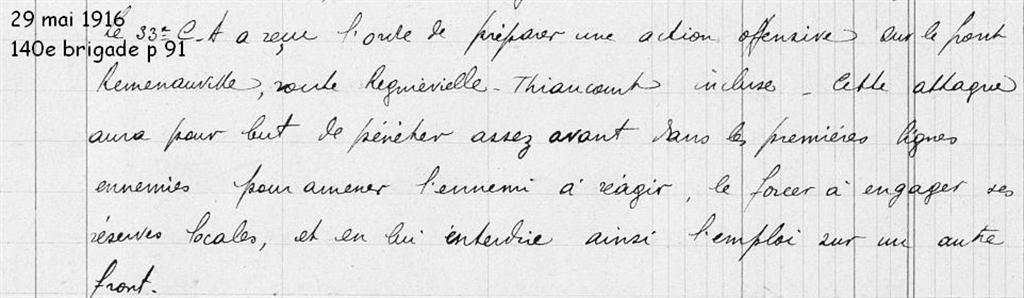 29 mai 1916
140e brigade p 91
Le 33e C.A a reçu l'ordre de préparer une action offensive sur le front
Remenauville, route Regniéville - Thiaucourt incluse - Cette attaque
aura pour but de pénétrer assez avant dans les premières lignes
ennemies pour amener l'ennemi à réagir, le forcer à engager ses
réserves locales, et en lui interdire ainsi l'emploi sur un autre
front.